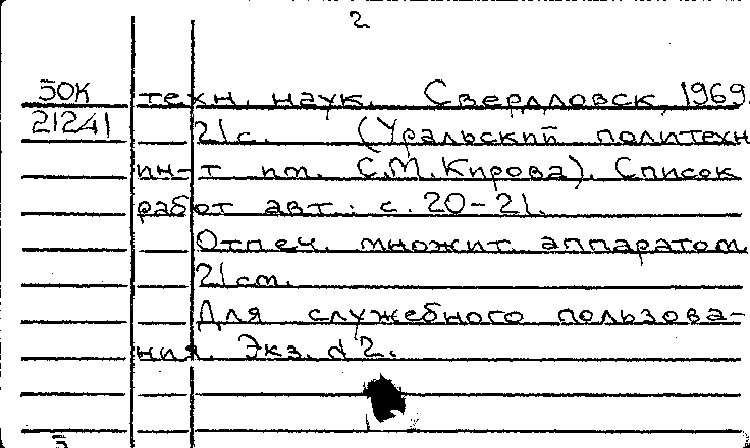 2
50К техн. наук. Свердловск, 1969.
21241 21с. (Уральский политехн
ин-т им. С.М.Кирова). Список
работ авт.: с. 20-21.
Отпеч. множит. аппаратом
21см.
Для служебного пользова-
ния. Экз. №2.